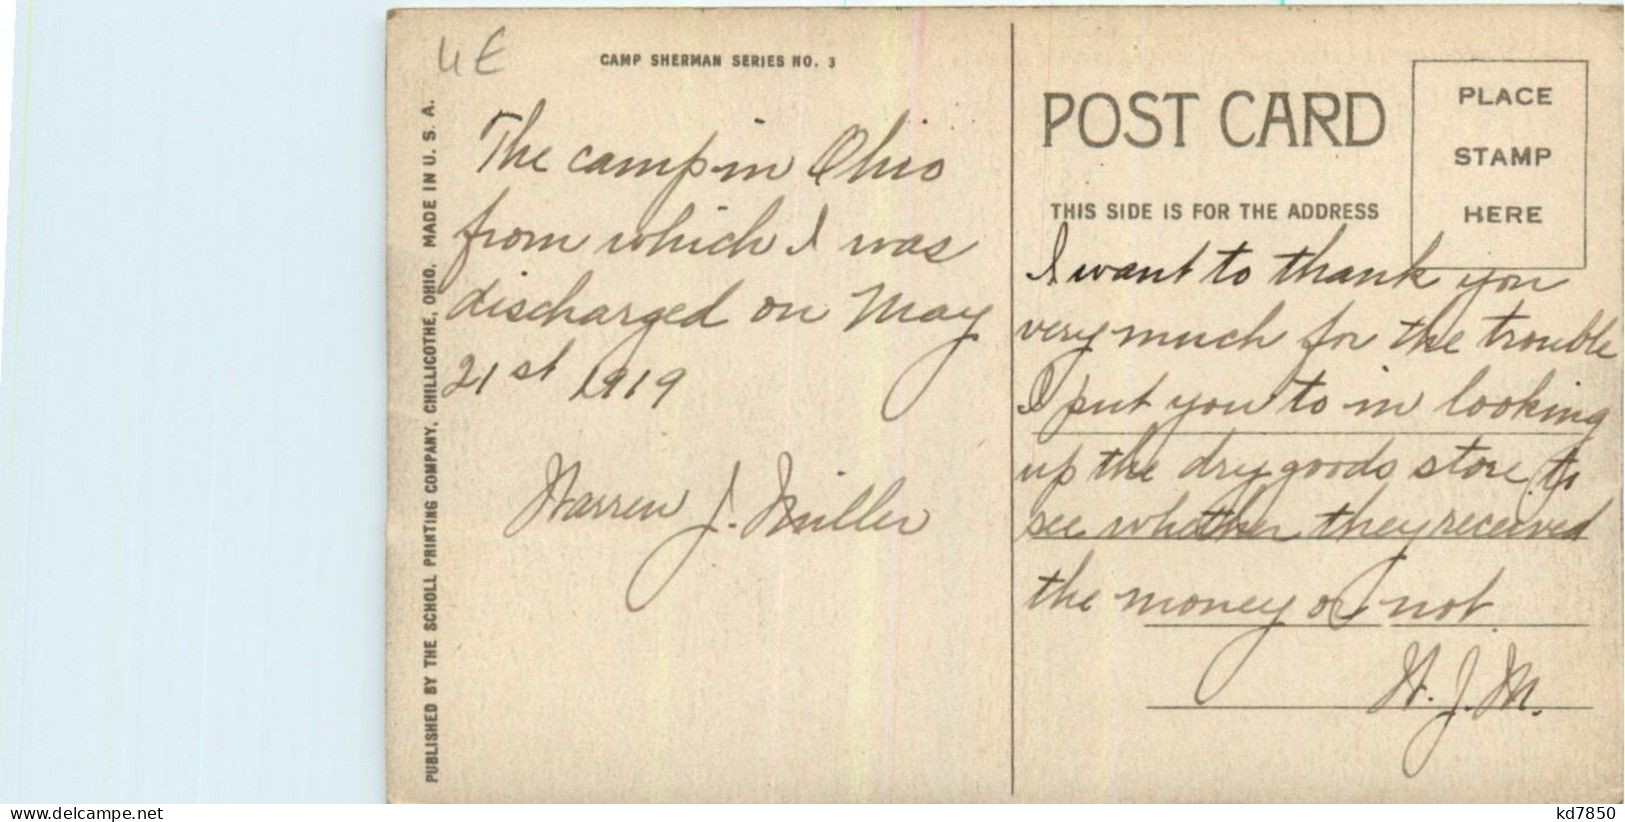 4 €
CAMP SHERMAN SERIES NO. 3
PUBLISHED BY THE SCHOLL PRINTING COMPANY, CHILLICOTHE, OHIO. MADE IN U. S. A.
The camp in Ohio
from which I was
discharged on May
21st 1919
Warren J. Miller
POST CARD
PLACE
STAMP
HERE
THIS SIDE IS FOR THE ADDRESS
I want to thank you
very much for the trouble
I put you to in looking
up the dry goods store to
see whether they received
the money or not.
W. J. M.
www.delcampe.net
kd7850